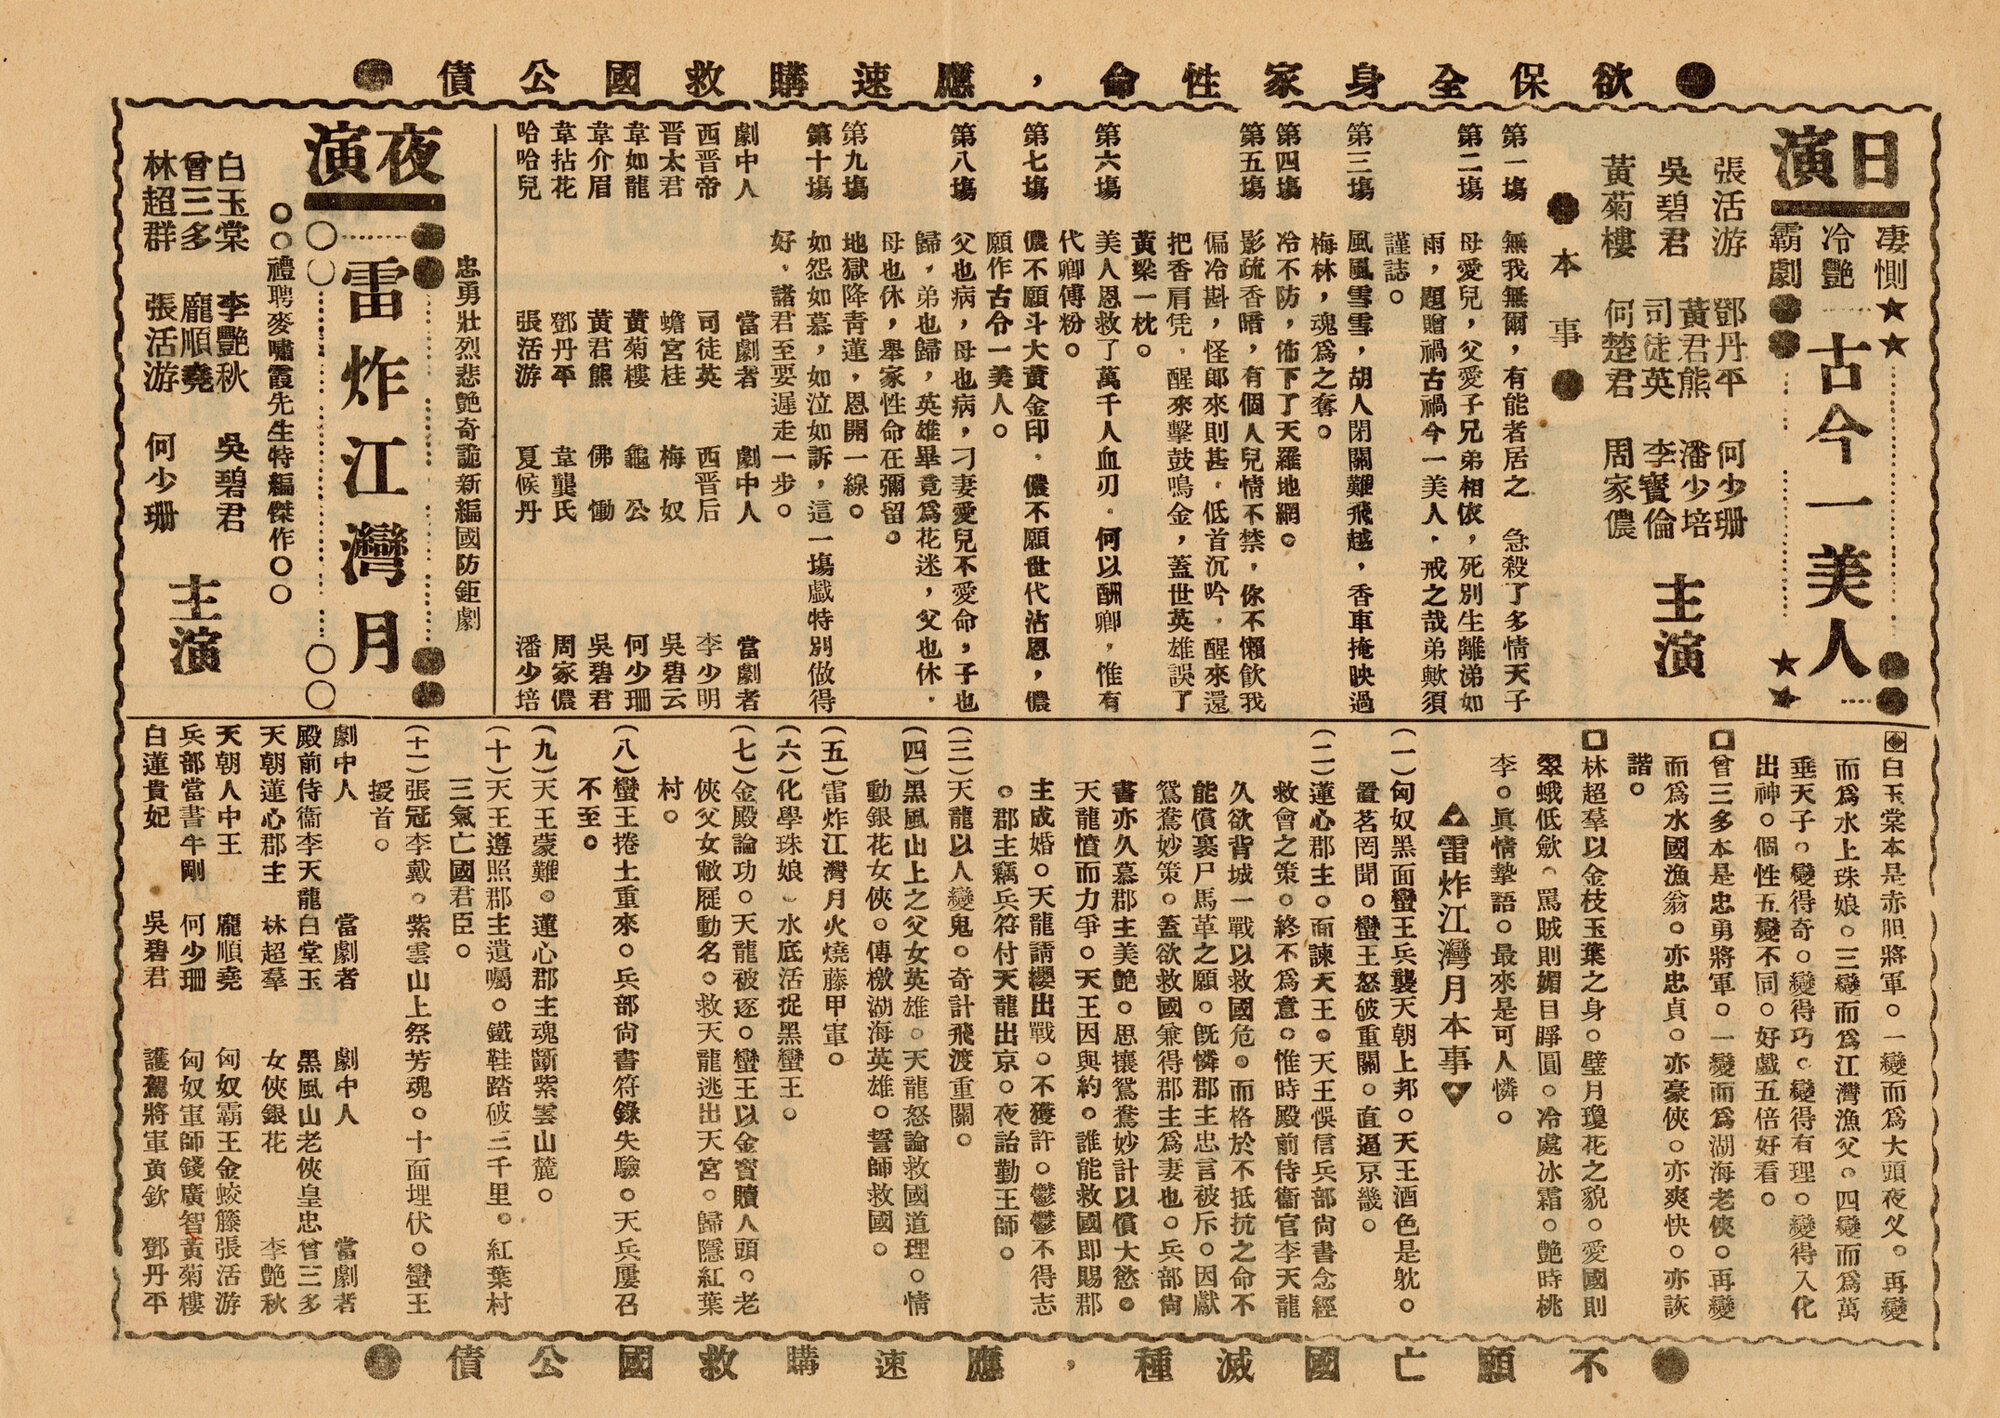 欲保全身家性命，應速購救國公債
日演
凄惻
冷艷
霸劇
古今一美人
張活游　鄧丹平　何少珊
吳碧君　黃君熊　潘少培
司徒英　李寶倫
黃菊樓　何楚君　周家儂
主演
本事
第一塲　無我無爾，有能者居之　急殺了多情天子
第二塲　母愛兒，父愛子兄弟相依，死別生離涕如
雨，題贈禍古禍今一美人．戒之哉弟歟須
謹誌。
第三塲　風風雪雪，胡人閉關難飛越，香車掩映過
梅林，魂爲之奪。
第四塲　冷不防，佈下了天羅地網。
第五塲　影疏香暗，有個人兒情不禁，你不懶飲我
偏冷斟，怪郎來則甚，低首沉吟，醒來還
把香肩凭．醒來擊鼓鳴金，蓋世英雄誤了
黃粱一枕。
第六塲　美人恩救了萬千人血刃．何以酬卿，惟有
代卿傅粉。
第七塲　儂不願斗大黃金印．儂不願世代沾恩，儂
願作古今一美人。
第八塲　父也病，母也病，刁妻愛兒不愛命，子也
歸，弟也歸，英雄畢竟爲花迷，父也休．
母也休，舉家性命在彌留。
第九塲　地獄降青蓮，恩開一線。
第十塲　如怨如慕，如泣如訴，這一塲戲特別做得
好．諸君至要遲走一步。
劇中人　當劇者　劇中人　當劇者
西晋帝　司徒英　西晋后　李少明
晋太君　蟾宮桂　梅奴　吳碧云
韋如龍　黃菊樓　龜公　何少珊
韋介眉　黃君熊　佛慟　吳碧君
韋拈花　鄧丹平　韋龔氏　周家儂
哈哈兒　張活游　夏候丹　潘少培
夜演
忠勇壯烈悲艷奇詭新編國防鉅劇
雷炸江灣月
禮聘麥嘯霞先生特編傑作
白玉棠　李艷秋　吳碧君
曾三多　龐順堯
林超群　張活游　何少珊
主演
白玉棠本是赤胆將軍。一變而爲大頭夜义。再變
而爲水上珠娘。三變而爲江灣漁父。四變而爲萬
乘天子。變得奇。變得巧。變得有理。變得入化
出神。個性五變不同。好戲五倍好看。
曾三多本是忠勇將軍。一變而爲湖海老俠。再變
而爲水國漁翁。亦忠貞。亦豪俠。亦爽快。亦詼
諧。
林超羣以金枝玉葉之身。壁月瓊花之貌。愛國則
翠蛾低歛。罵賊則媚目睜圓。冷處冰霜。艷時桃
李。眞情摯語。最來是可人憐。
雷炸江灣月本事
（一）匈奴黑面蠻王兵襲天朝上邦。天王酒色是躭。
置若罔聞。蠻王怒破重關。直逼京畿。
（二）蓮心郡主。面諫天王。天王悞信兵部尙書念經
救會之策。終不爲意。惟時殿前侍衞官李天龍
久欲背城一戰以救國危。而格於不抵抗之命不
能償裹尸馬革之願。旣憐郡主忠言被斥。因獻
鴛鴦妙策。蓋欲救國兼得郡主爲妻也。兵部尙
書亦久慕郡主美艶。思攘鴛鴦妙計以償大慾。
天龍憤而力爭。天王因與約。誰能救國卽賜郡
主成婚。天龍請纓出戰。不獲許。鬱鬱不得志
。郡主竊兵符付天龍出京。夜詒勤王師。
（三）天龍以人變鬼。奇計飛渡重關。
（四）黑風山上之父女英雄。天龍怒論救國道理。情
動銀花女俠。傳檄湖海英雄。誓師救國。
（五）雷炸江灣月火燒藤甲軍。
（六）化學珠娘。水底活捉黑蠻王。
（七）金殿論功。天龍被逐。蠻王以金寳贖人頭。老
俠父女敝屣動名。救天龍逃出天宮。歸隱紅葉
村。
（八）蠻王捲土重來。兵部尙書符錄失驗。天兵屢召
不至。
（九）天王蒙難。蓮心郡主魂斷紫雲山麓。
（十）天王遵照郡主遺囑。鐵鞋踏破三千里。紅葉村
三氣亡國君臣。
（十一）張冠李戴。紫雲山上祭芳魂。十面埋伏。蠻王
授首。
劇中人　當劇者　劇中人　當劇者
殿前侍衞李天龍　白堂玉　黑風山老俠皇忠　曾三多
天朝蓮心郡主　林超羣　女俠銀花　李艷秋
天朝人中王　龐順堯　匈奴霸王金蛟籐　張活游
兵部當書牛剛　何少珊　匈奴軍師錢廣智　黃菊樓
白蓮貴妃　吳碧君　護駕將軍黃欽　鄧丹平
不願亡國滅種，應速購救國公債